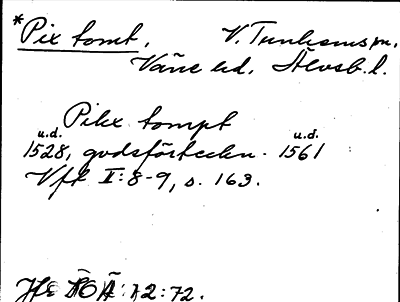 *Pix tomt. V. Tunhems sn.
Väne hd. Älvsb. l.
Pikx tompt
u.d. u.d.
1528, godsförteckn. 1561
Vft II:8-9, s. 163.
Ä:12:72.